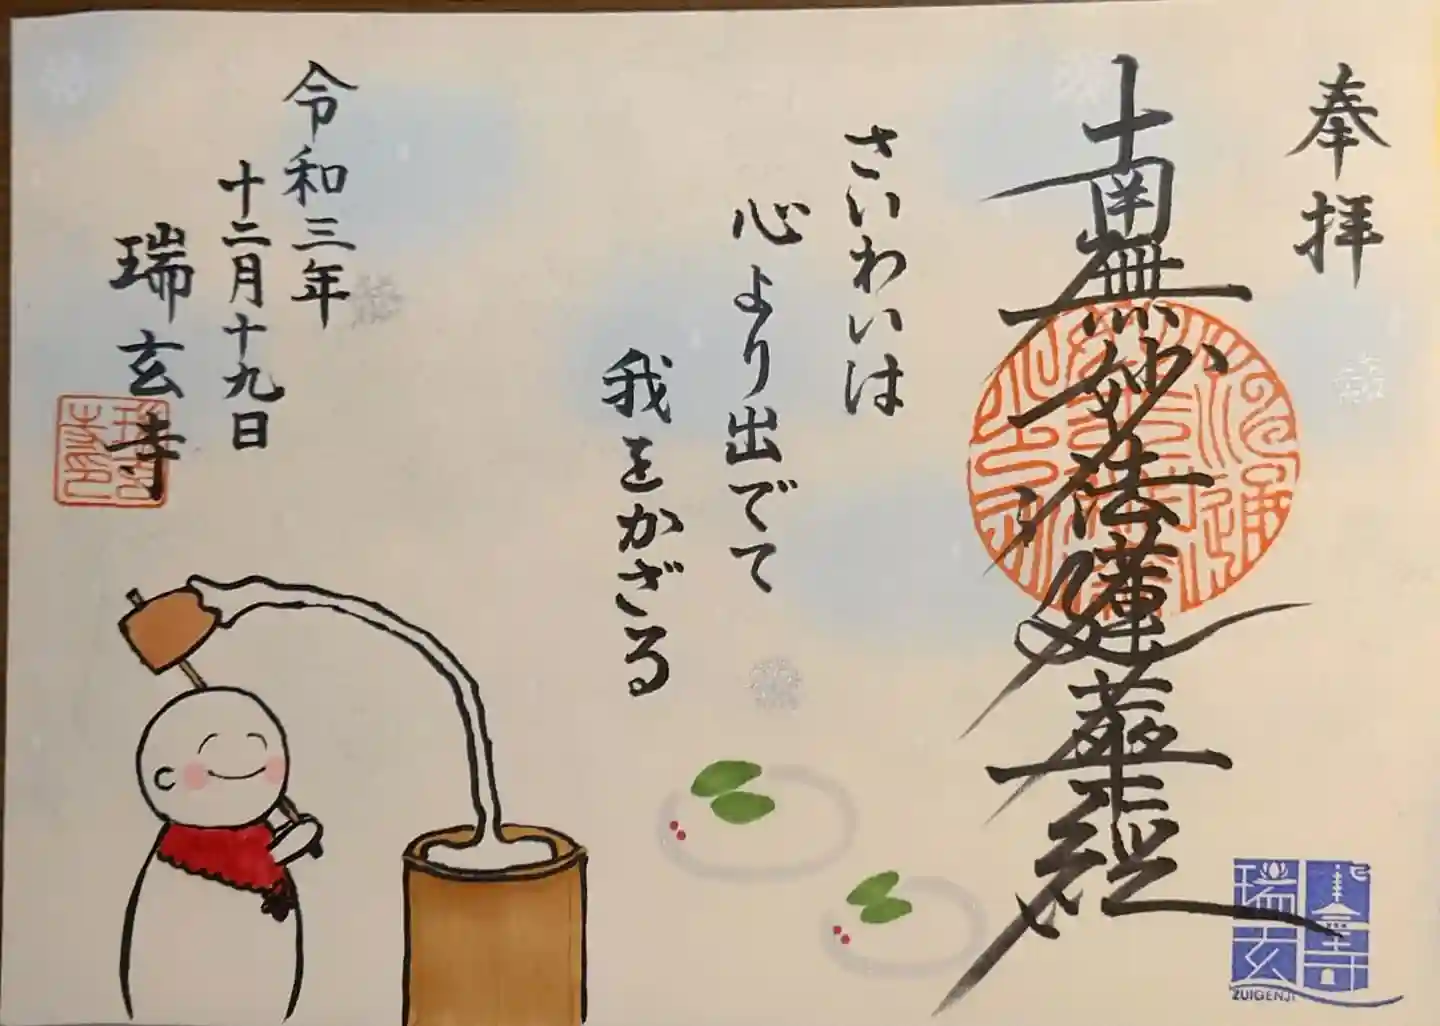 奉拝
南無妙法蓮華経
さいわいは
心より出でて
我をかざる
令和三年
十二月十九日
瑞玄寺
瑞玄寺
ZUIGENJI